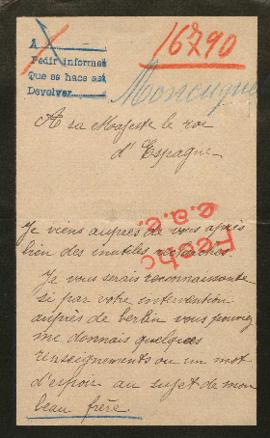 16290
A
Pedir informes
Que se hace así
Devolver
Moncuque
A sa Majesté le roi
d'Espagne
Fecho
e.a.e.
Je viens auprès de vous après
bien des inutiles recherches.
Je vous serais reconnaissante
si par votre intervention
auprès de berlin vous pouviez
me donnais quelques
renseignements ou un mot
d'espoir au sujet de mon
beau frère